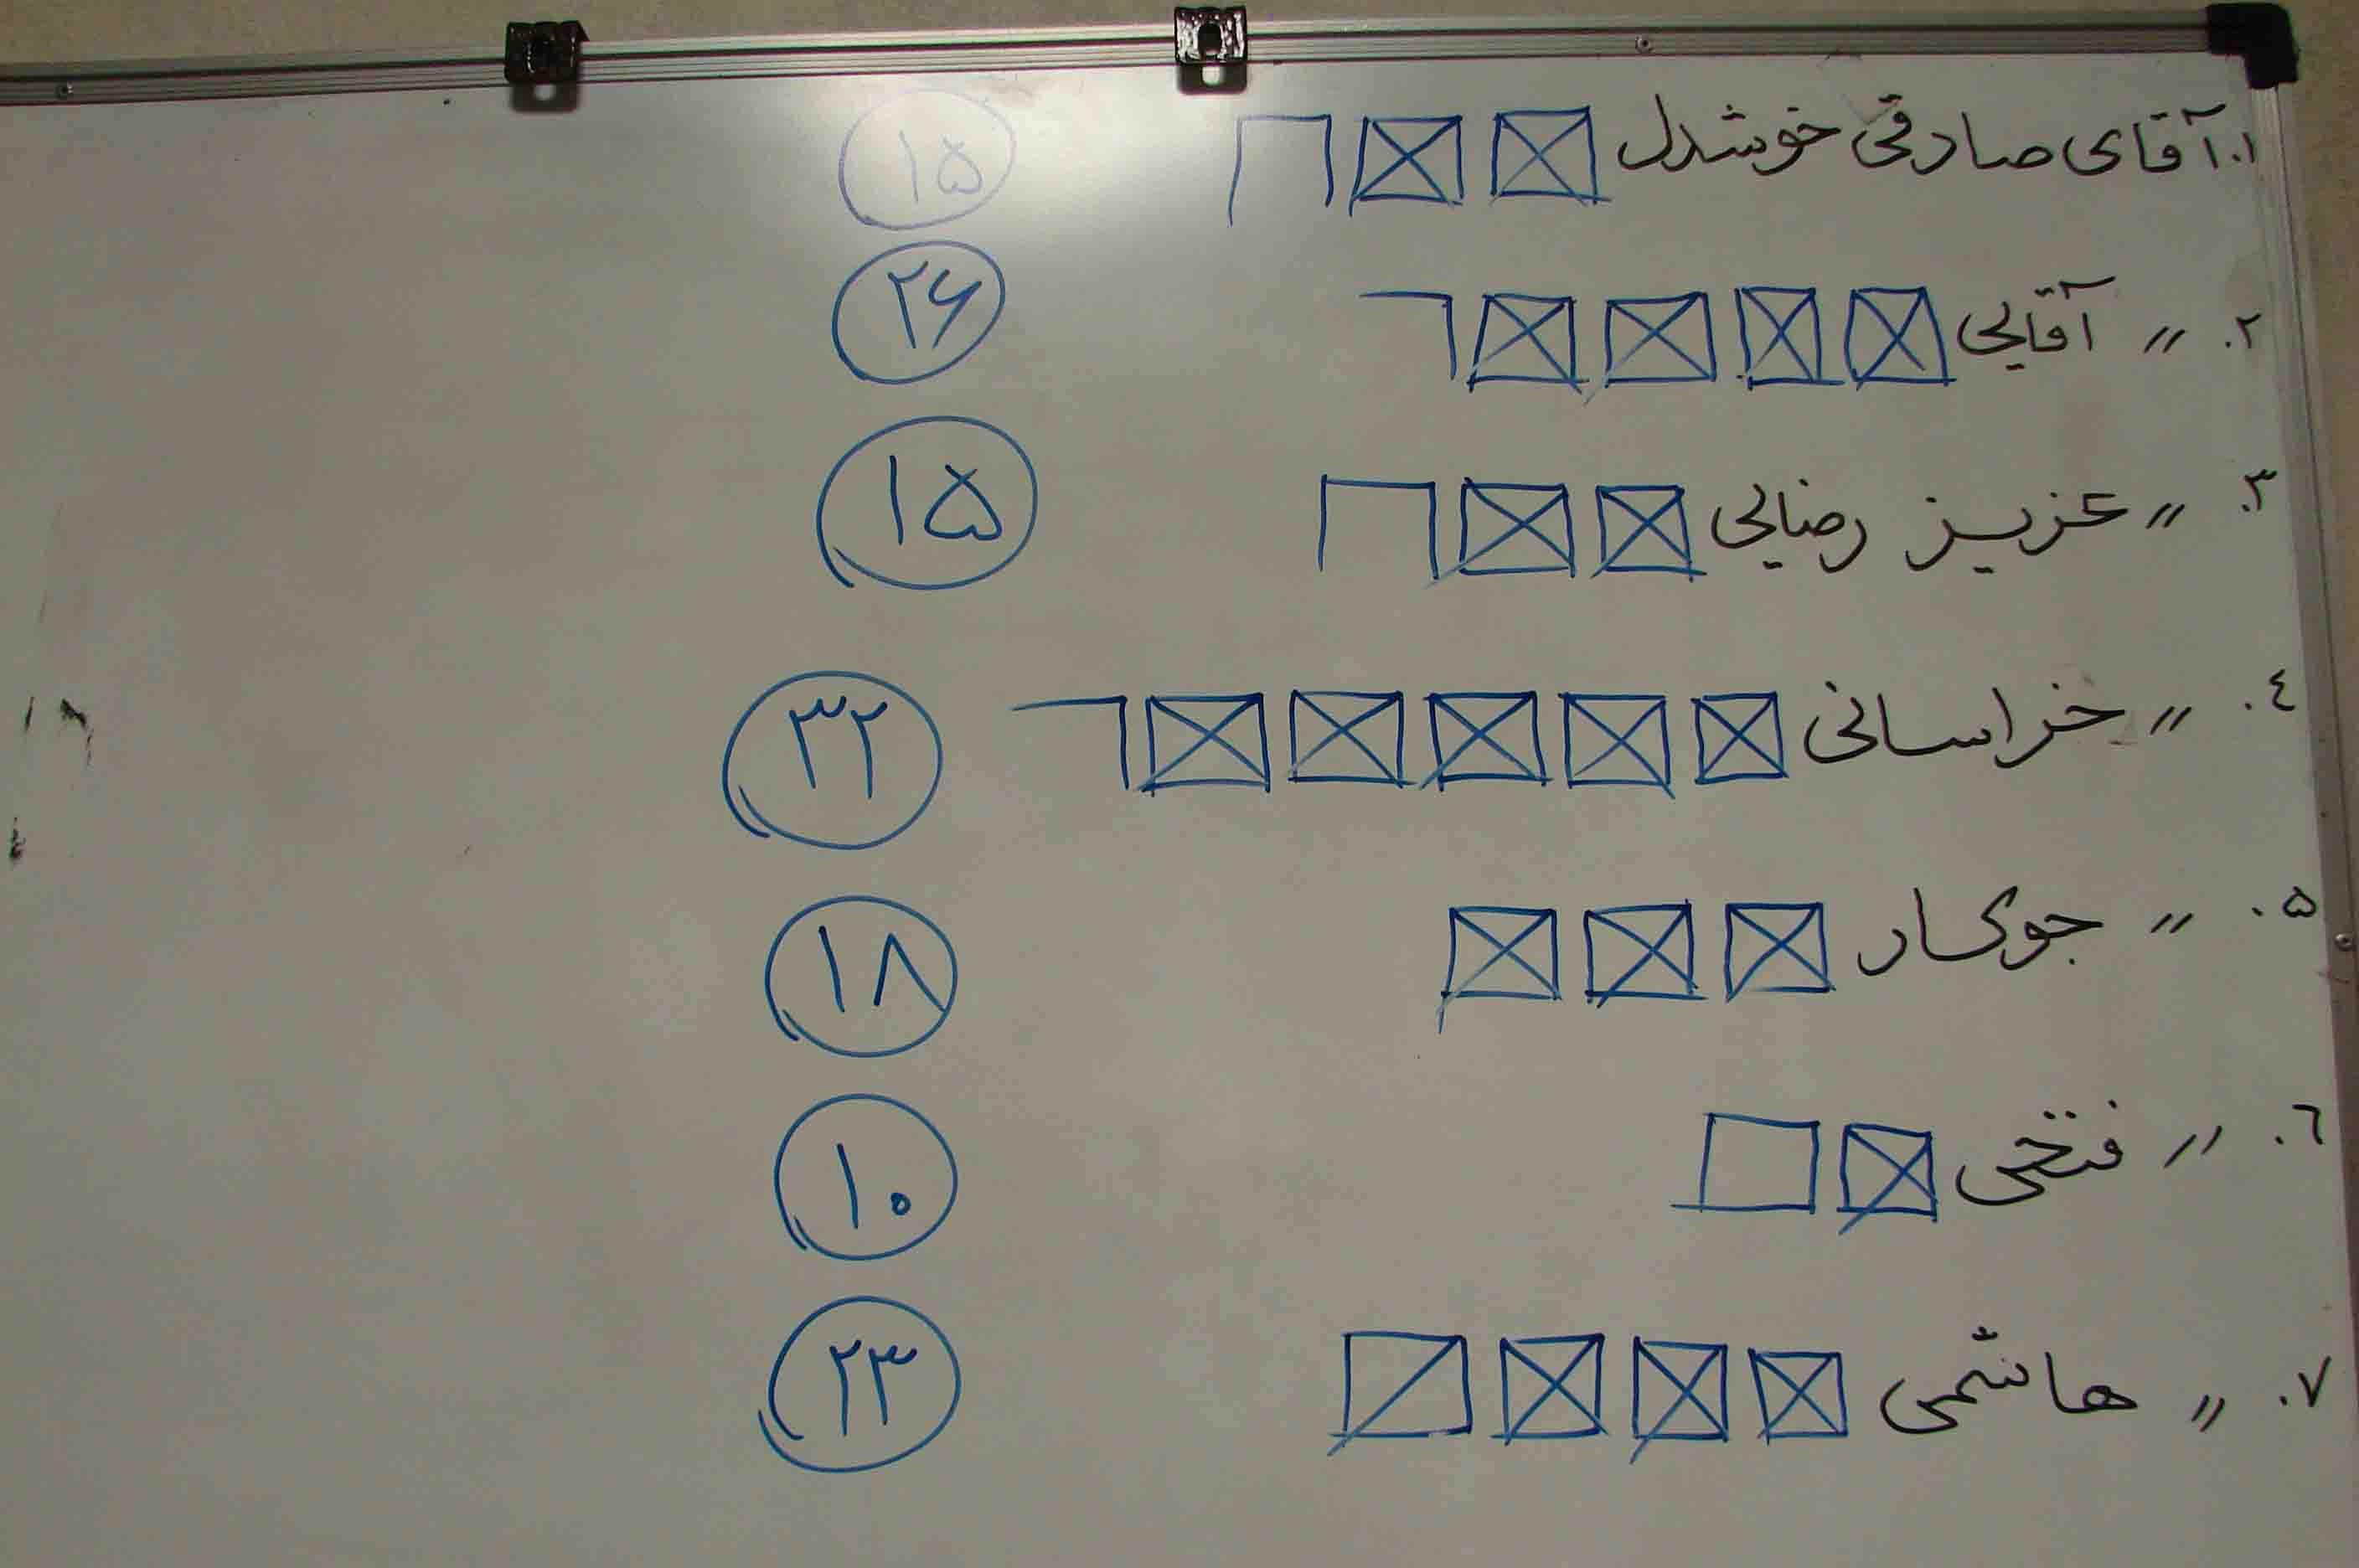 ۱. آقای صادقی خوشدل ۱۵
۲. // آقایی ۲۶
۳. // عزیز رضایی ۱۵
٤. // خراسانی ۳۲
۵. // جوکار ۱۸
٦. // فتحی ۱۰
۷. // هاشمی ۲۳